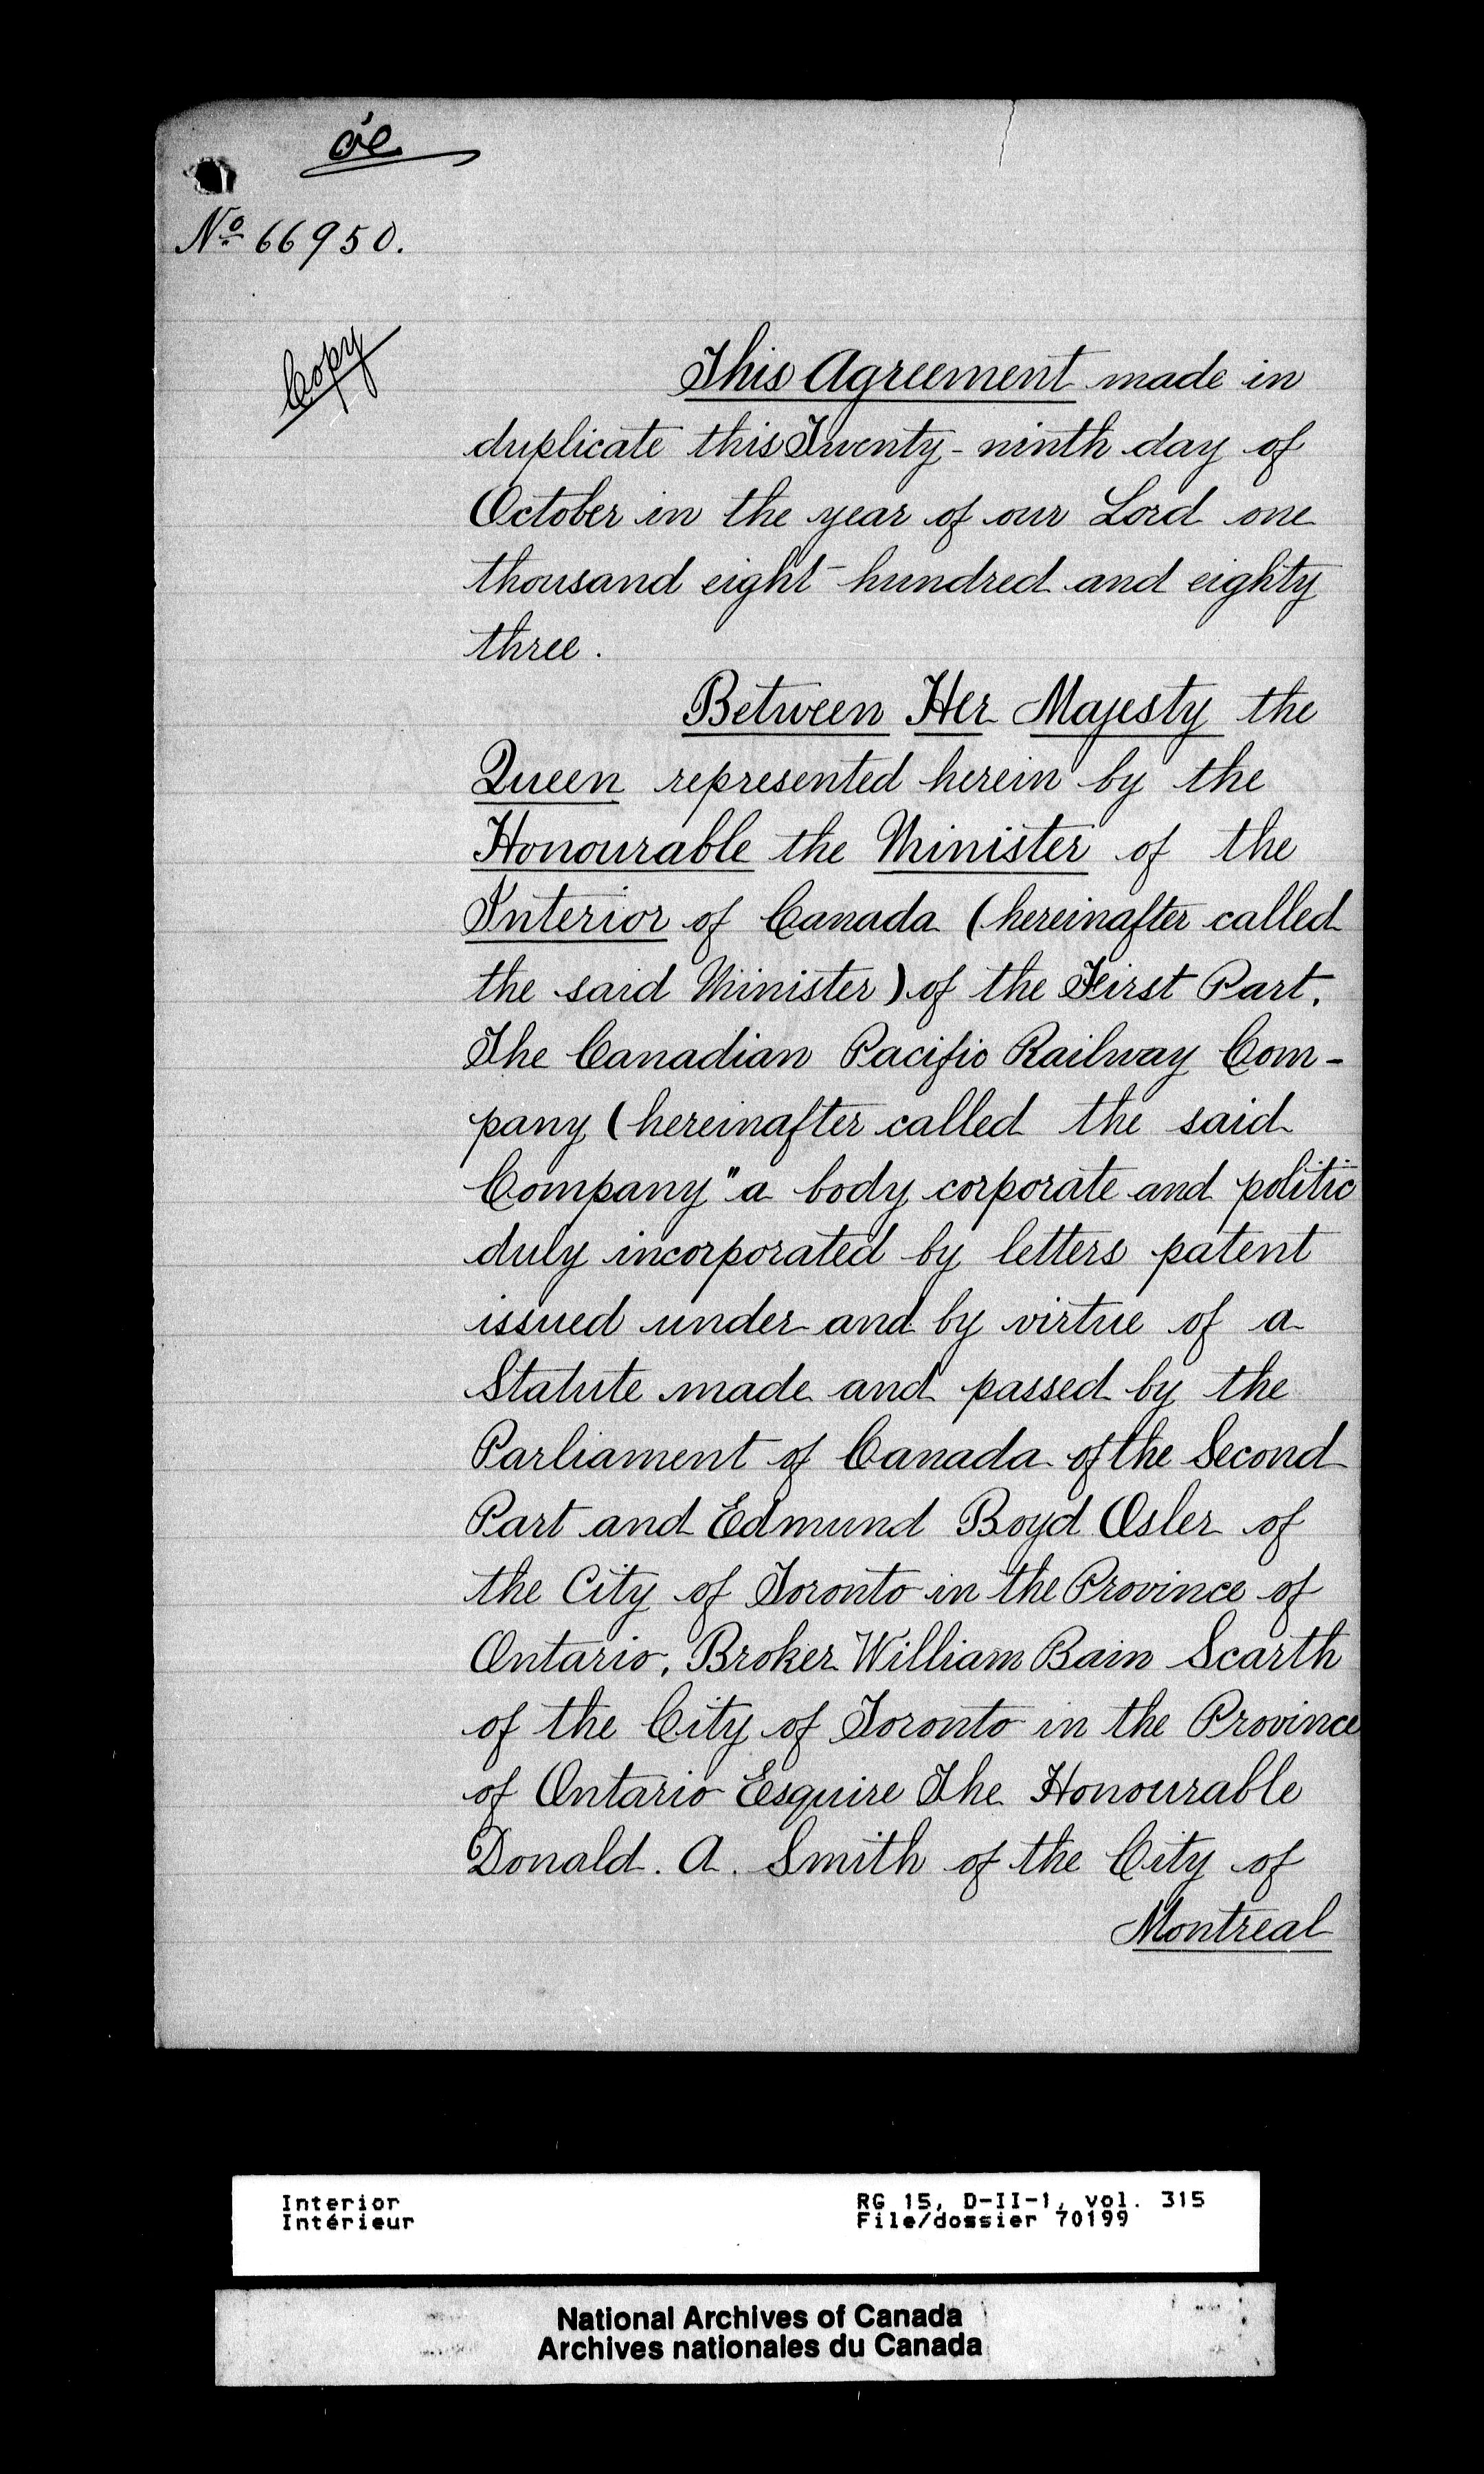 No 66950.
Copy
This Agreement made in
duplicate this Twenty-ninth day of
October in the year of our Lord one
thousand eight hundred and eighty
three.
Between Her Majesty the
Queen represented herein by the
Honourable the Minister of the
Interior of Canada (hereinafter called
the said Minister) of the First Part.
The Canadian Pacific Railway Com-
pany (hereinafter called the said
Company" a body corporate and politic
duly incorporated by letters patent
issued under and by virtue of a
Statute made and passed by the
Parliament of Canada of the Second
Part and Edmund Boyd Osler of
the City of Toronto in the Province of
Ontario, Broker William Bain Scarth
of the City of Toronto in the Province
of Ontario Esquire The Honourable
Donald. A. Smith of the City of
Montreal
Interior
Intérieur
RG 15, D-II-1, vol. 315
File/dossier 70199
National Archives of Canada
Archives nationales du Canada